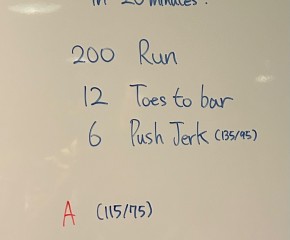 in 20 minutes:
200 Run
12 Toes to bar
6 Push Jerk (135/95)
A (115/75)